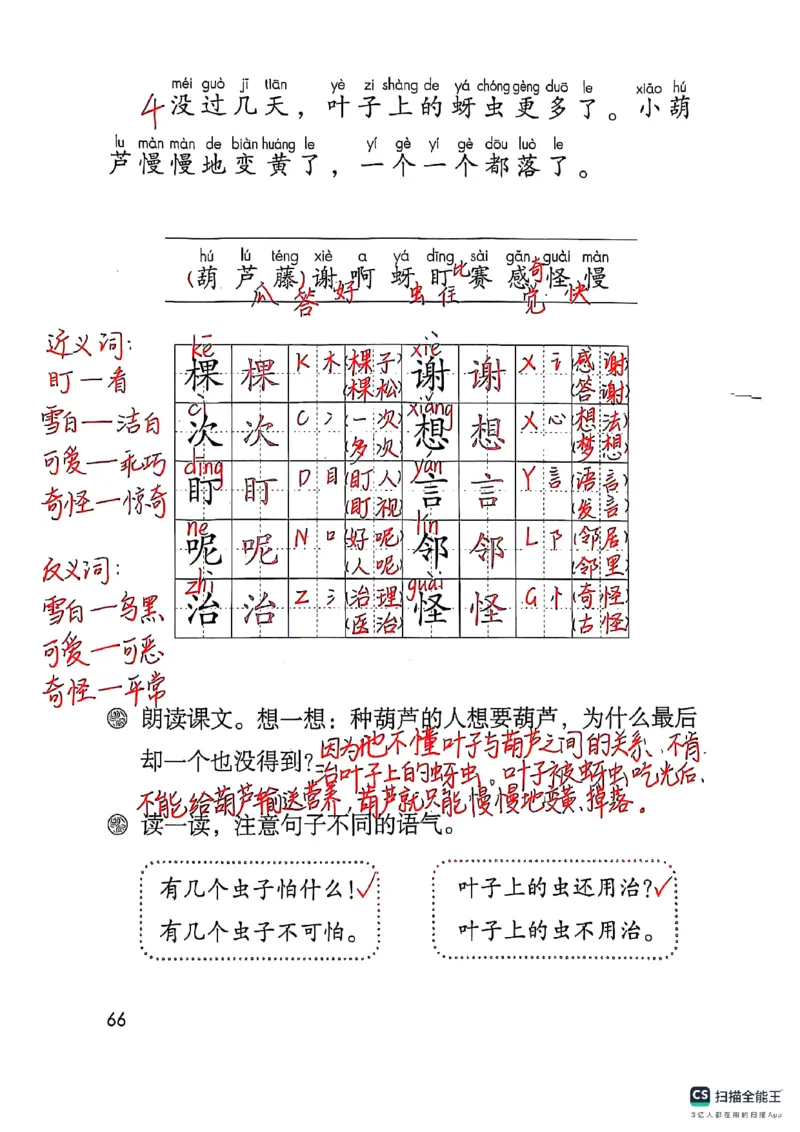 méi guò jǐ tiān yè zi shàng de yá chóng gèng duō le xiǎo hú
4没过几天，叶子上的蚜虫更多了。小葫
lu màn màn de biàn huáng le yí gè yí gè dōu luò le
芦慢慢地变黄了，一个一个都落了。
hú lú téng xiè a yá dīng sài gǎn guài màn
(葫芦藤)谢啊蚜盯比赛感奇怪慢
瓜 答 好 虫 住 觉 快
近义词：
盯—看
雪白—洁白
可爱—乖巧
奇怪—惊奇
反义词：
雪白—乌黑
可爱—可恶
奇怪—平常
kē xiè
棵 棵 K 木 (棵子) 谢 谢 X 讠 (感谢)
(棵松) (答谢)
cì xiǎng
次 次 C 冫 (一次) 想 想 X 心 (想法)
(多次) (梦想)
dīng yán
盯 盯 D 目 (盯人) 言 言 Y 言 (语言)
(盯视) (发言)
ne lín
呢 呢 N 口 (好呢) 邻 邻 L 阝 (邻居)
(人呢) (邻里)
zhì guài
治 治 Z 氵 (治理) 怪 怪 G 忄 (奇怪)
(医治) (古怪)
朗读课文。想一想：种葫芦的人想要葫芦，为什么最后
却一个也没得到？因为他不懂叶子与葫芦之间的关系、不肯
治叶子上的蚜虫。叶子被蚜虫吃光后、
不能给葫芦输送营养，葫芦就只能慢慢地变黄、掉落。
读一读，注意句子不同的语气。
有几个虫子怕什么！✓
有几个虫子不可怕。
叶子上的虫还用治？✓
叶子上的虫不用治。
66
CS 扫描全能王
3亿人都在用的扫描App